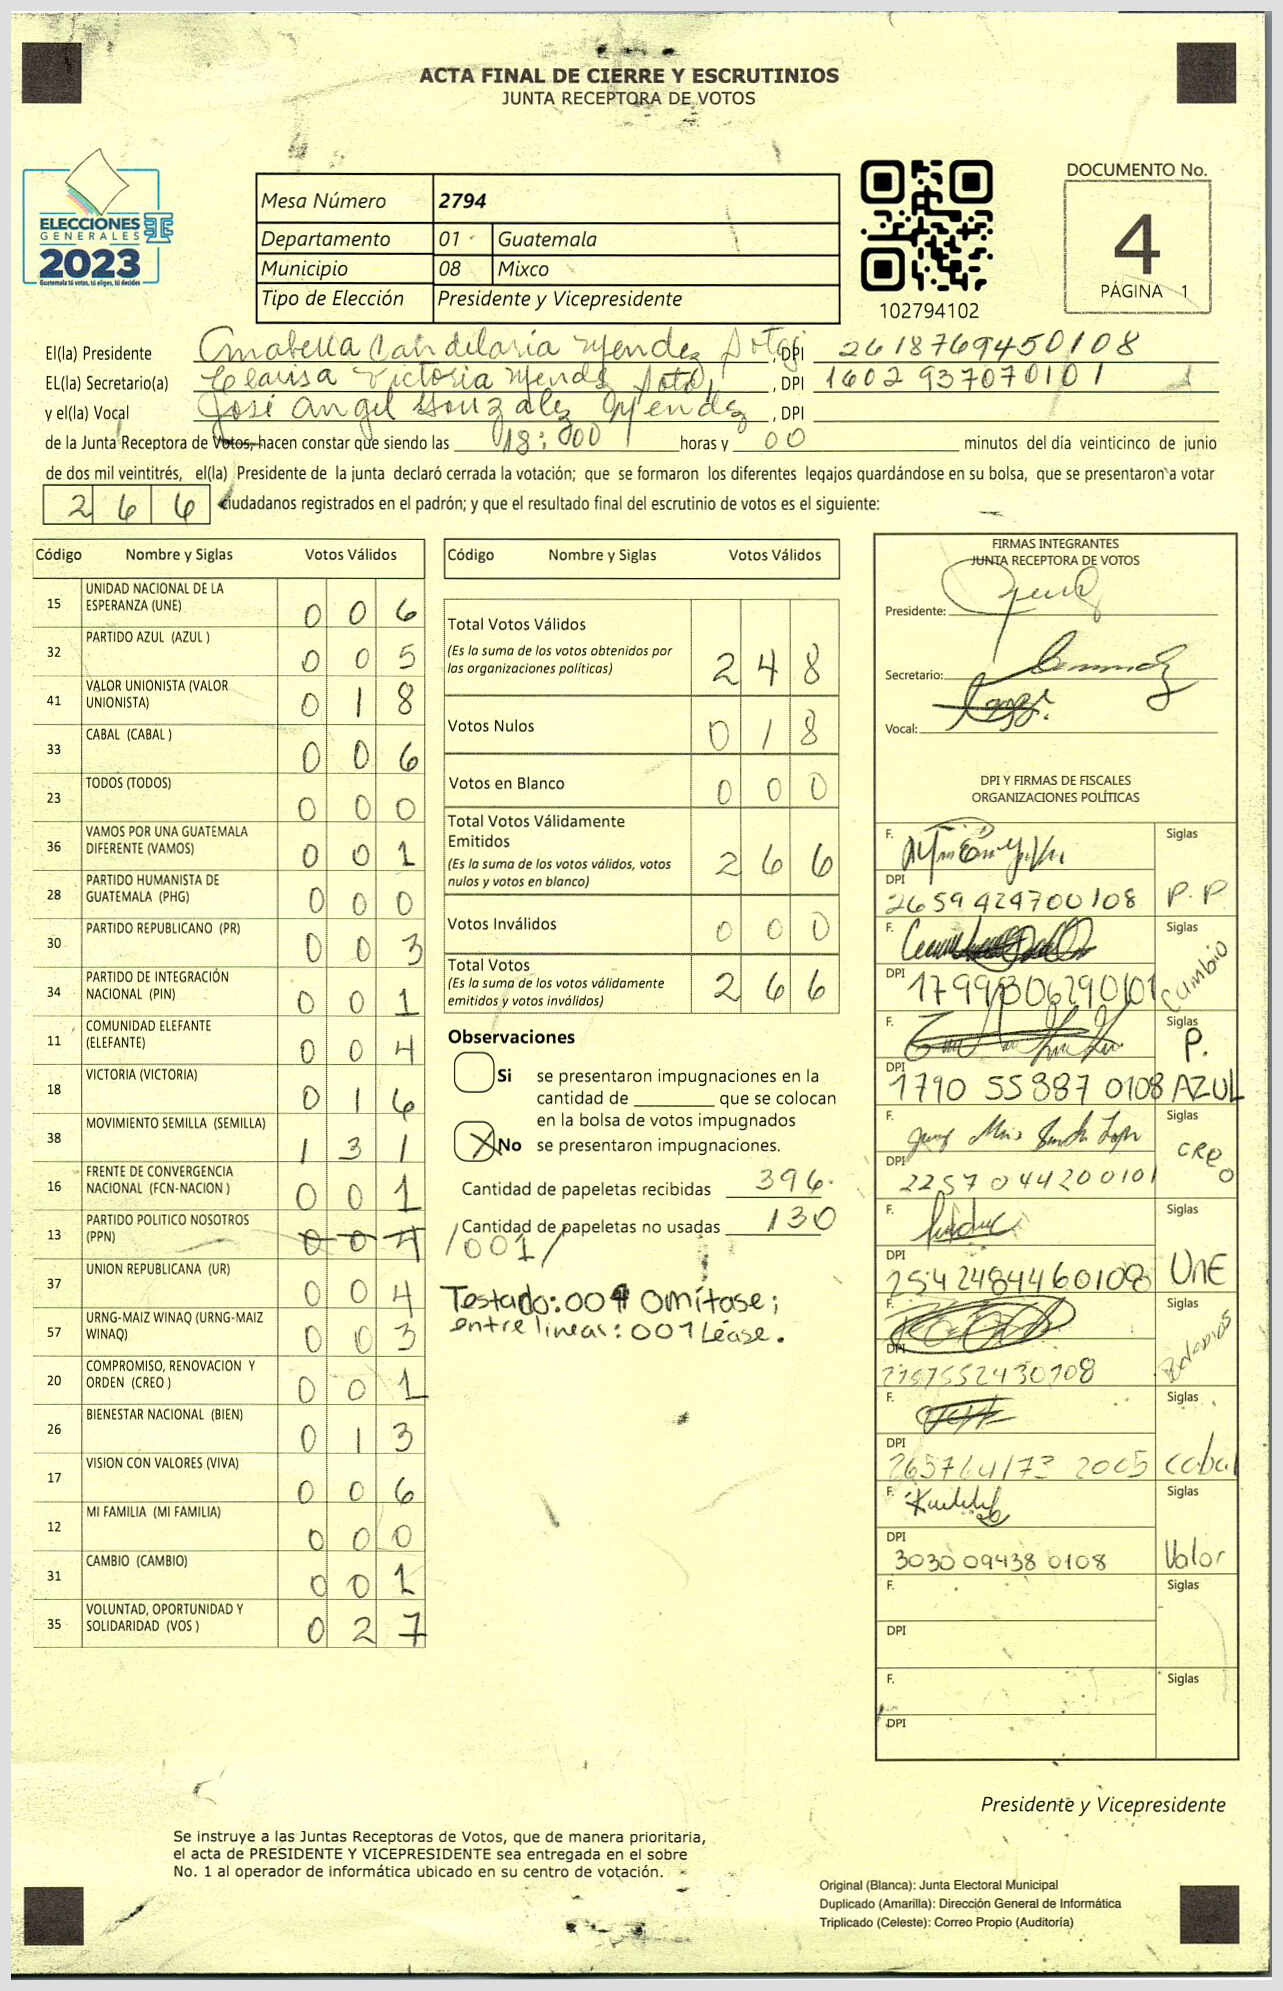 ACTA FINAL DE CIERRE Y ESCRUTINIOS
JUNTA RECEPTORA DE VOTOS
ELECCIONES
GENERALES
2023
Guatemala tú votas, tú eliges, tú decides
Mesa Número 2794
Departamento 01 Guatemala
Municipio 08 Mixco
Tipo de Elección Presidente y Vicepresidente
102794102
DOCUMENTO No.
4
PÁGINA 1
El(la) Presidente Amabella Candelaria Mendez Soto, DPI 2618769450108
EL(la) Secretario(a) Clarisa Victoria Mendz Soto, DPI 1602937070101
y el(la) Vocal José Angel Gonzalez Mendez, DPI
de la Junta Receptora de Votos, hacen constar que siendo las 18:000 horas y 00 minutos del día veinticinco de junio
de dos mil veintitrés, el(la) Presidente de la junta declaró cerrada la votación; que se formaron los diferentes legajos guardándose en su bolsa, que se presentaron a votar
266 ciudadanos registrados en el padrón; y que el resultado final del escrutinio de votos es el siguiente:
Código Nombre y Siglas Votos Válidos
15 UNIDAD NACIONAL DE LA ESPERANZA (UNE) 006
32 PARTIDO AZUL (AZUL ) 005
41 VALOR UNIONISTA (VALOR UNIONISTA) 018
33 CABAL (CABAL ) 006
23 TODOS (TODOS) 000
36 VAMOS POR UNA GUATEMALA DIFERENTE (VAMOS) 001
28 PARTIDO HUMANISTA DE GUATEMALA (PHG) 000
30 PARTIDO REPUBLICANO (PR) 003
34 PARTIDO DE INTEGRACIÓN NACIONAL (PIN) 001
11 COMUNIDAD ELEFANTE (ELEFANTE) 004
18 VICTORIA (VICTORIA) 016
38 MOVIMIENTO SEMILLA (SEMILLA) 131
16 FRENTE DE CONVERGENCIA NACIONAL (FCN-NACION ) 001
13 PARTIDO POLITICO NOSOTROS (PPN) 004 /001/
37 UNION REPUBLICANA (UR) 004
57 URNG-MAIZ WINAQ (URNG-MAIZ WINAQ) 003
20 COMPROMISO, RENOVACION Y ORDEN (CREO ) 001
26 BIENESTAR NACIONAL (BIEN) 013
17 VISION CON VALORES (VIVA) 006
12 MI FAMILIA (MI FAMILIA) 000
31 CAMBIO (CAMBIO) 001
35 VOLUNTAD, OPORTUNIDAD Y SOLIDARIDAD (VOS ) 027
Código Nombre y Siglas Votos Válidos
Total Votos Válidos 248
(Es la suma de los votos obtenidos por
las organizaciones políticas)
Votos Nulos 018
Votos en Blanco 000
Total Votos Válidamente
Emitidos 266
(Es la suma de los votos válidos, votos
nulos y votos en blanco)
Votos Inválidos 000
Total Votos 266
(Es la suma de los votos válidamente
emitidos y votos inválidos)
Observaciones
Si se presentaron impugnaciones en la
cantidad de ________ que se colocan
en la bolsa de votos impugnados
X No se presentaron impugnaciones.
Cantidad de papeletas recibidas 396.
Cantidad de papeletas no usadas 130
Testado: 004 Omítase;
entre lineas: 001 Léase.
FIRMAS INTEGRANTES
JUNTA RECEPTORA DE VOTOS
Presidente:
Secretario:
Vocal:
DPI Y FIRMAS DE FISCALES
ORGANIZACIONES POLÍTICAS
F. Siglas P.P
DPI 2659424700108
F. Siglas Cambio
DPI 1799306290101
F. Siglas P. AZUL
DPI 1790 55387 0108
F. Siglas CREO
DPI 2257044200101
F. Siglas UNE
DPI 2542484460108
F. Siglas
DPI
F. Siglas Cabal
DPI 265764173 2005
F. Siglas Valor
DPI 3030 09438 0108
F. Siglas
DPI
F. Siglas
DPI
Presidente y Vicepresidente
Se instruye a las Juntas Receptoras de Votos, que de manera prioritaria,
el acta de PRESIDENTE Y VICEPRESIDENTE sea entregada en el sobre
No. 1 al operador de informática ubicado en su centro de votación.
Original (Blanca): Junta Electoral Municipal
Duplicado (Amarilla): Dirección General de Informática
Triplicado (Celeste): Correo Propio (Auditoría)